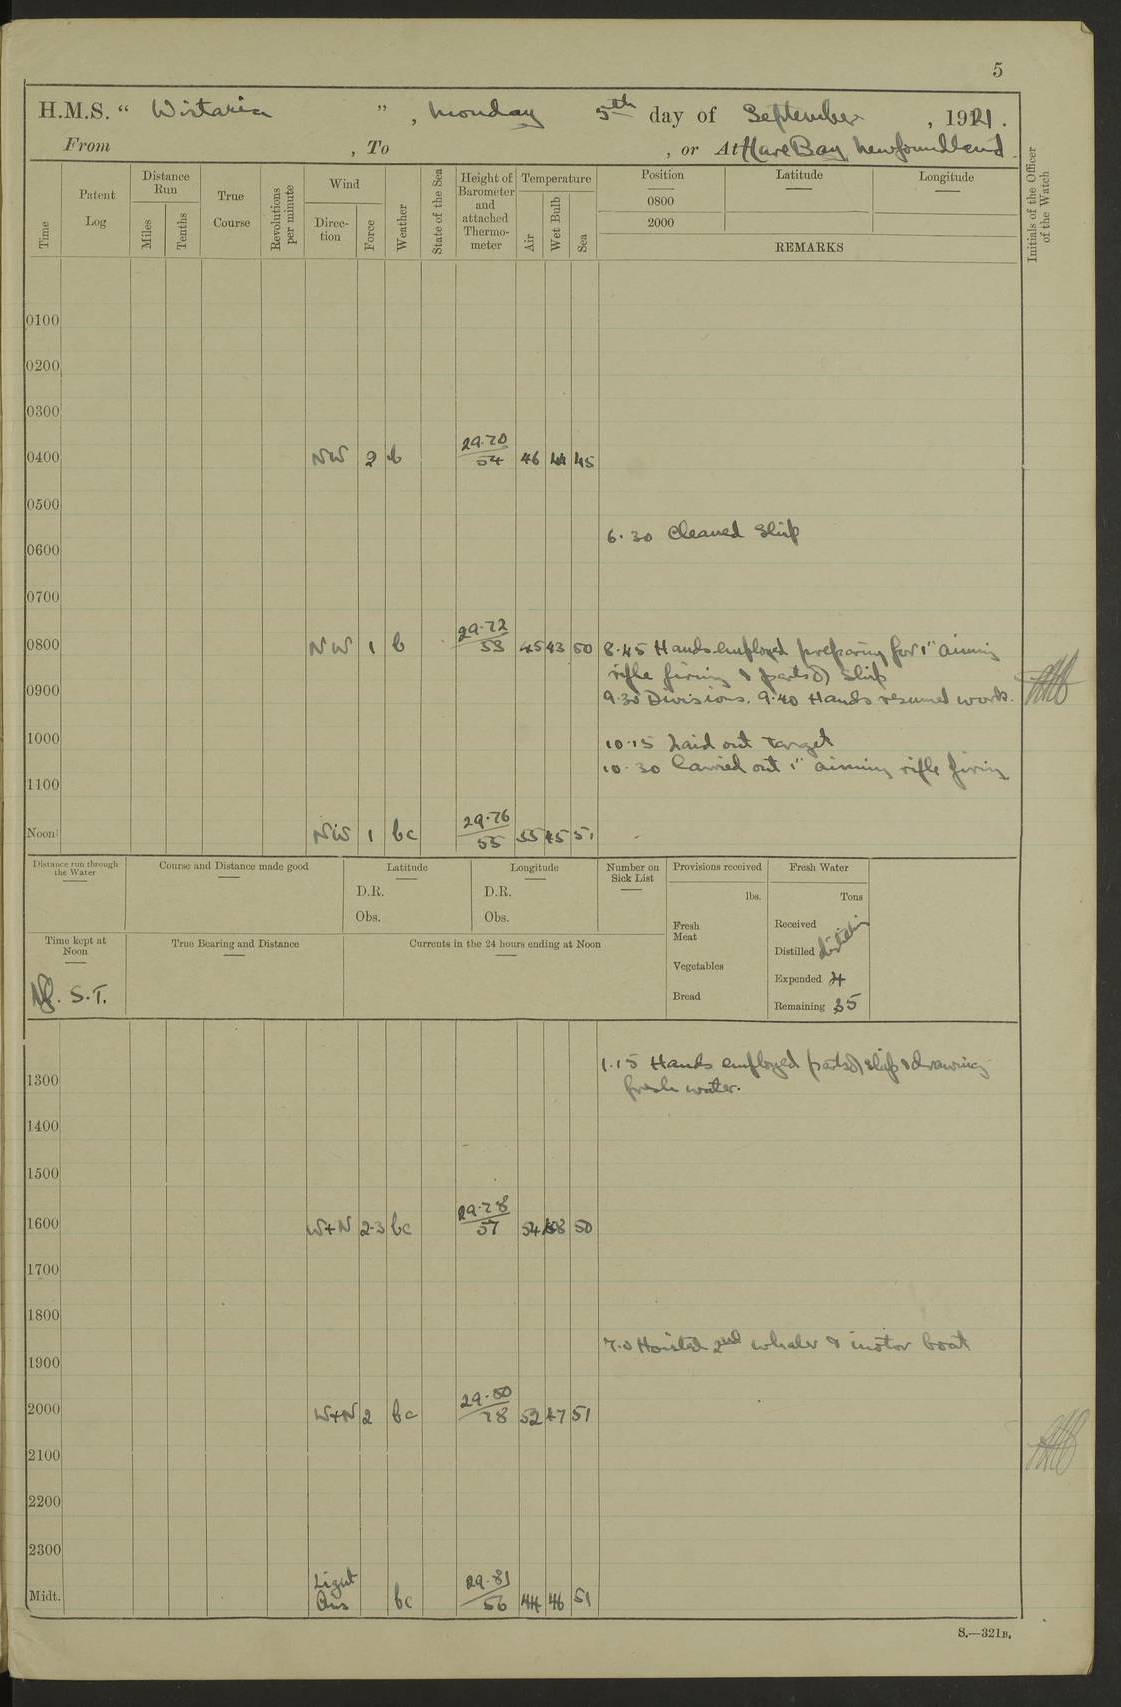 5
H.M.S. " Wistaria ", Monday 5th day of September, 1921.
From , To , or At Hare Bay Newfoundland.
Time
Patent Log
Distance Run
Miles
Tenths
True Course
Revolutions per minute
Wind
Direction
Force
Weather
State of the Sea
Height of Barometer and attached Thermometer
Temperature
Air
Wet Bulb
Sea
Position
0800
2000
Latitude
Longitude
REMARKS
Initials of the Officer of the Watch
0100
0200
0300
0400 NW 2 b 29.70/54 46 44 45
0500
6.30 Cleaned Ship
0600
0700
0800 NW 1 b 29.72/53 45 43 50 8.45 Hands employed preparing for 1" aiming
rifle firing & parts of ship
0900 9.30 Divisions. 9.40 Hands resumed work.
1000 10.15 Laid out target
10.30 Carried out 1" aiming rifle firing
1100
Noon NW 1 bc 29.76/55 55 45 51
Distance run through the Water
Course and Distance made good
Latitude
D.R.
Obs.
Longitude
D.R.
Obs.
Number on Sick List
Provisions received
lbs.
Fresh Meat
Vegetables
Bread
Fresh Water
Tons
Received
Distilled
Expended 4
Remaining 35
Time kept at Noon
Nf. S.T.
True Bearing and Distance
Currents in the 24 hours ending at Noon
1.15 Hands employed parts of ship & drawing
1300 fresh water.
1400
1500
1600 W+N 2-3 bc 29.78/57 54 48 50
1700
1800
7.0 Hoisted 2nd whaler & motor boat
1900
2000 W+N 2 bc 29.80/78 52 47 51
2100
2200
2300
Midt. Light Airs bc 29.81/56 44 46 51
S.—321B.